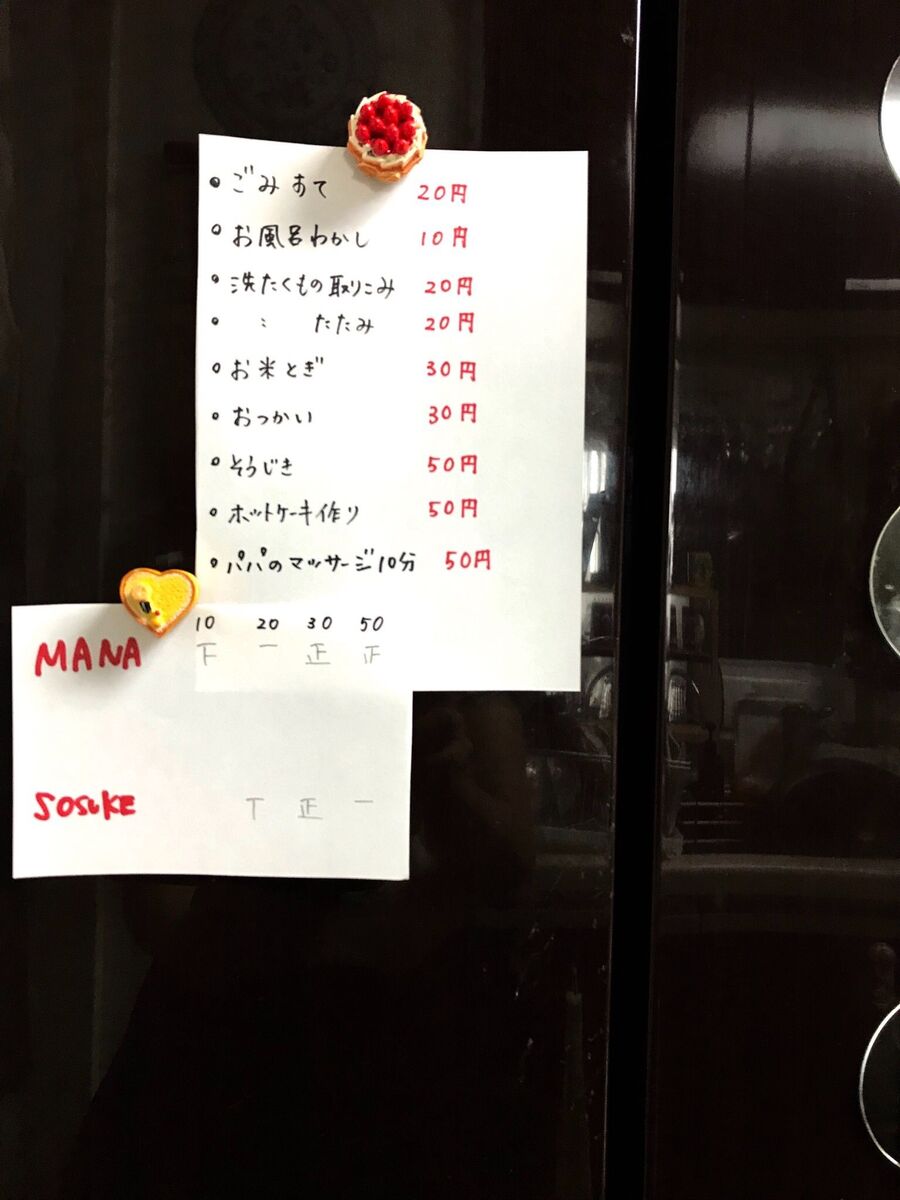 • ごみすて 20円
• お風呂わかし 10円
• 洗たくもの取りこみ 20円
• 〃 たたみ 20円
• お米とぎ 30円
• おつかい 30円
• そうじき 50円
• ホットケーキ作り 50円
• パパのマッサージ10分 50円
10 20 30 50
MANA 下 一 正 正
SOSUKE T 正 一